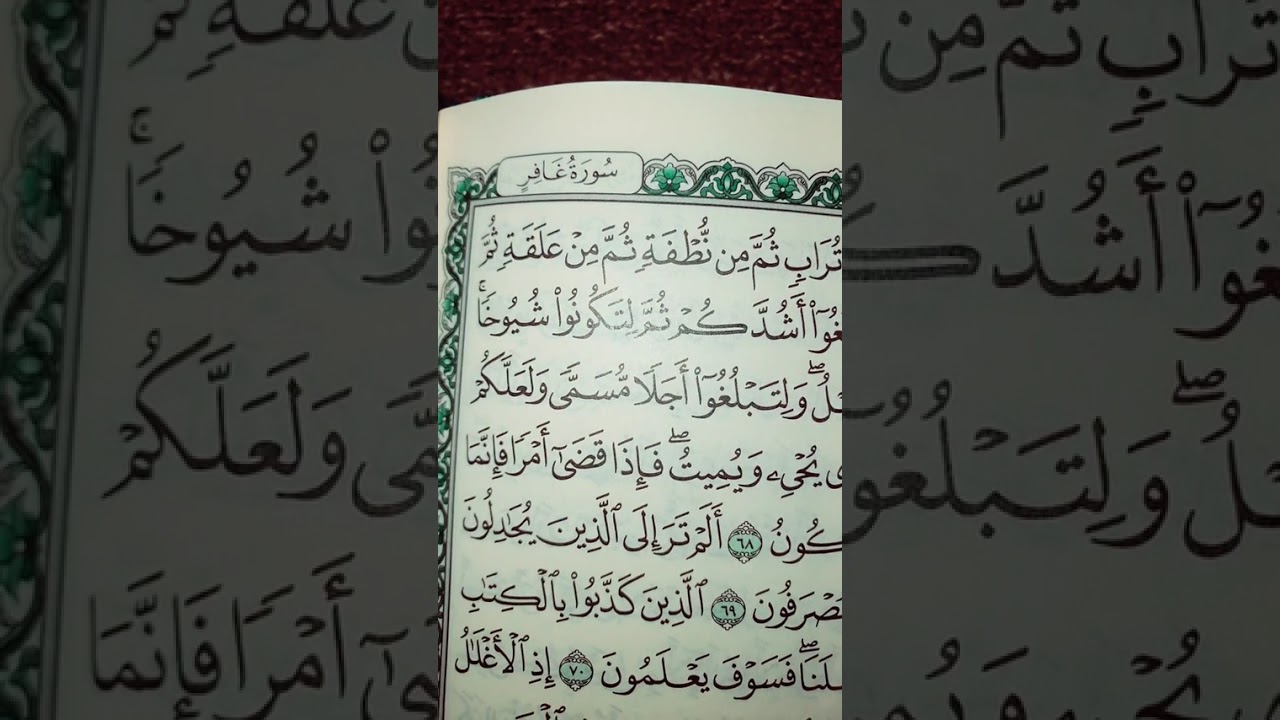 سُورَةُ غَافِرٍ
تُرَابٍ ثُمَّ مِن نُّطْفَةٍ ثُمَّ مِنْ عَلَقَةٍ ثُمَّ
أَشُدَّكُمْ ثُمَّ لِتَكُونُوا۟ شُيُوخًا ۚ
وَلِتَبْلُغُوٓا۟ أَجَلًا مُّسَمًّى وَلَعَلَّكُمْ
يُحْىِۦ وَيُمِيتُ ۖ فَإِذَا قَضَىٰٓ أَمْرًا فَإِنَّمَا
كُونُ ٦٨ أَلَمْ تَرَ إِلَى ٱلَّذِينَ يُجَٰدِلُونَ
صْرَفُونَ ٦٩ ٱلَّذِينَ كَذَّبُوا۟ بِٱلْكِتَٰبِ
لَنَا ۖ فَسَوْفَ يَعْلَمُونَ ٧٠ إِذِ ٱلْأَغْلَٰلُ